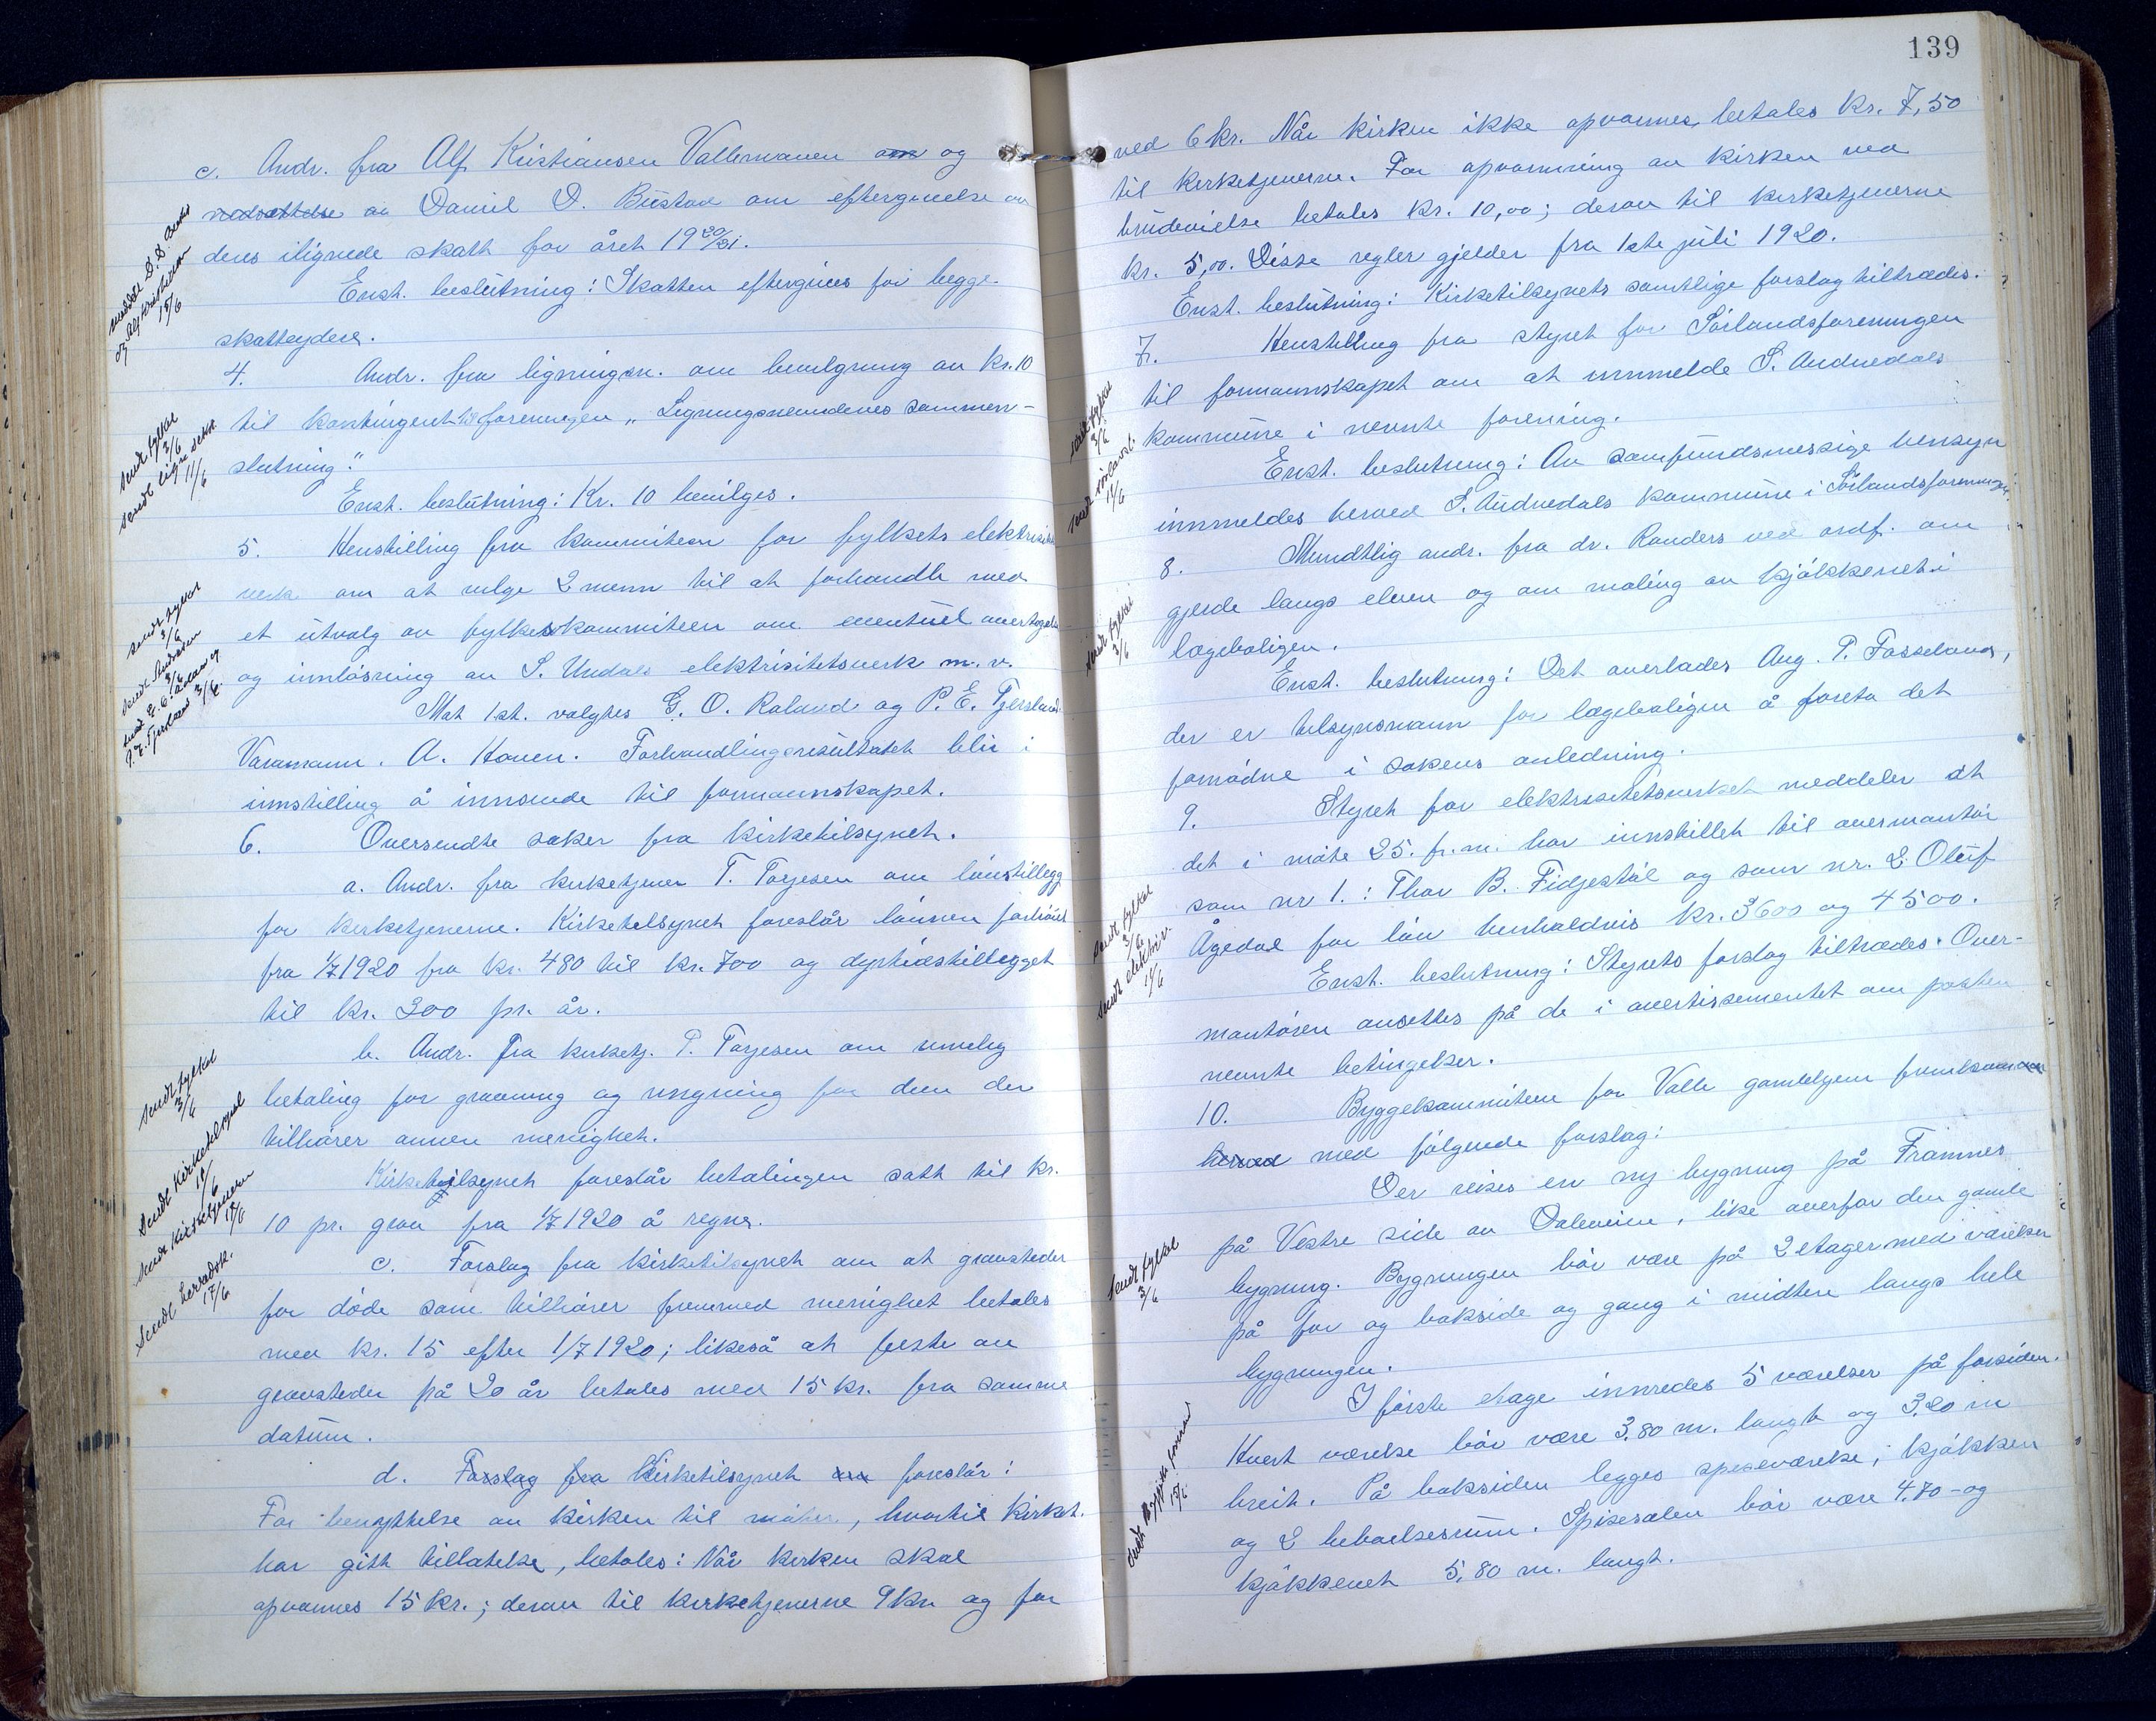 c. Andr. fra Alf Kristiansen Vallemonen om og
nedsettelse av Daniel D. Bustad om eftergivelse av
deres ilignede skatt for året 19 20/21.
Enst. beslutning: Skatten eftergives for begge
skatteydere.
4. Andr. fra ligningsn. om bevilgning av kr. 10
til kontingent til foreningen "Ligningsnemdenes sammen-
slutning".
Enst. beslutning: Kr. 10 bevilges.
5. Henstilling fra kommiteen for fylkets elektrisitets
verk om at velge 2 menn til at forhandle med
et utvalg av fylkeskommiteen om eventuel overtagelse
og innløsning av S. Undals elektrisitetsverk m. v.
Mot 1 st. valgtes G. O. Røland og P. E. Tjersland.
Varamann. A. Hauen. Forhandlingsresultatet blir i
innstilling å innsende til formannskapet.
6. Oversendte saker fra kirketilsynet.
a. Andr. fra kirketjener T. Torjesen om lønstillegg
for kirketjenerne. Kirketilsynet foreslår lønnen forhøiet
fra 1/7 1920 fra kr. 480 til kr. 700 og dyrtidstillegget
til kr. 300 pr. år.
b. Andr. fra kirketj. T. Torjesen om rimelig
betaling for gravning og ringning for dem der
tilhører annen menighet.
Kirketilsynet foreslår betalingen satt til kr.
10 pr. grav fra 1/7 1920 å regne.
c. Forslag fra kirketilsynet om at gravsteder
for døde som tilhører fremmed menighet betales
med kr. 15 efter 1/7 1920; likeså at feste av
gravsteder på 20 år betales med 15 kr. fra samme
datum.
d. Forslag fra Kirketilsynet om foreslår:
For benyttelse av kirken til møter, hvortil kirket.
har gitt tillatelse, betales: Når kirken skal
opvarmes 15 kr.; derav til kirketjenerne 9 kr og for
meddelt D. D. Bustad
og Alf Kristiansen
15/6
sendt fylket
3/6
sendt lign.sekr.
11/6
sendt fylket
3/6
sendt
3/6
P. E. Tjersland 3/6
sendt fylket
3/6
Sendt Kirketilsynet
11/6
sendt Kirketjeneren
15/6
Sendt herredsk.
17/6
139
ved 6 kr. Når kirken ikke opvarmes, betales kr. 7,50
til kirketjenerne. For opvarmning av kirken ved
brudevielse betales kr. 10,00; derav til kirketjenerne
kr. 5,00. Disse regler gjelder fra 1ste juli 1920.
Enst. beslutning: Kirketilsynets samtlige forslag tiltrædes.
7. Henstilling fra styret for Sørlandsforeningen
til formannskapet om at innmelde S. Audnedals
kommune i nevnte forening.
Enst. beslutning: Av samfundsmessige hensyn
innmeldes herved S. Audnedals kommune i Sørlandsforeningen.
8. Mundtlig andr. fra dr. Randers ved ordf. om
gjerde langs elven og om maling av kjøkkenet i
lægeboligen.
Enst. beslutning: Det overlades Aug. P. Fosseland,
der er tilsynsmann for lægeboligen å foreta det
fornødne i sakens anledning.
9. Styret for elektrisitetsverket meddeler at
det i møte 25. f. m. har innstillet til overmontør
som nr 1.: Thor B. Fidjestøl og som nr. 2 Oluf
Ågedal for løn henholdsvis kr. 3600 og 4500.
Enst. beslutning: Styrets forslag tiltrædes. Over-
montøren ansettes på de i avertissementet om posten
nevnte betingelser.
10. Byggekommiteen for Valle gamlehjem fremkommer
herved med følgende forslag:
Der reises en ny bygning på Framnes
på Vestre side av Daleveien, like overfor den gamle
bygning. Bygningen bør være på 2 etager med værelser
på for og bakside og gang i midten langs hele
bygningen.
I første etage innredes 5 værelser på forsiden.
Hvert værelse bør være 3,80 m. langt og 3,20 m
breit. På baksiden legges spiseværelse; kjøkken
og 2 beboelsesrum. Spisesalen bør være 4,70 – og
kjøkkenet 5,80 m. langt.
sendt fylket
3/6
sendt
11/6
sendt fylket
3/6
sendt fylket
3/6
sendt elektriv.
11/6
sendt fylket
3/6
sendt
15/6